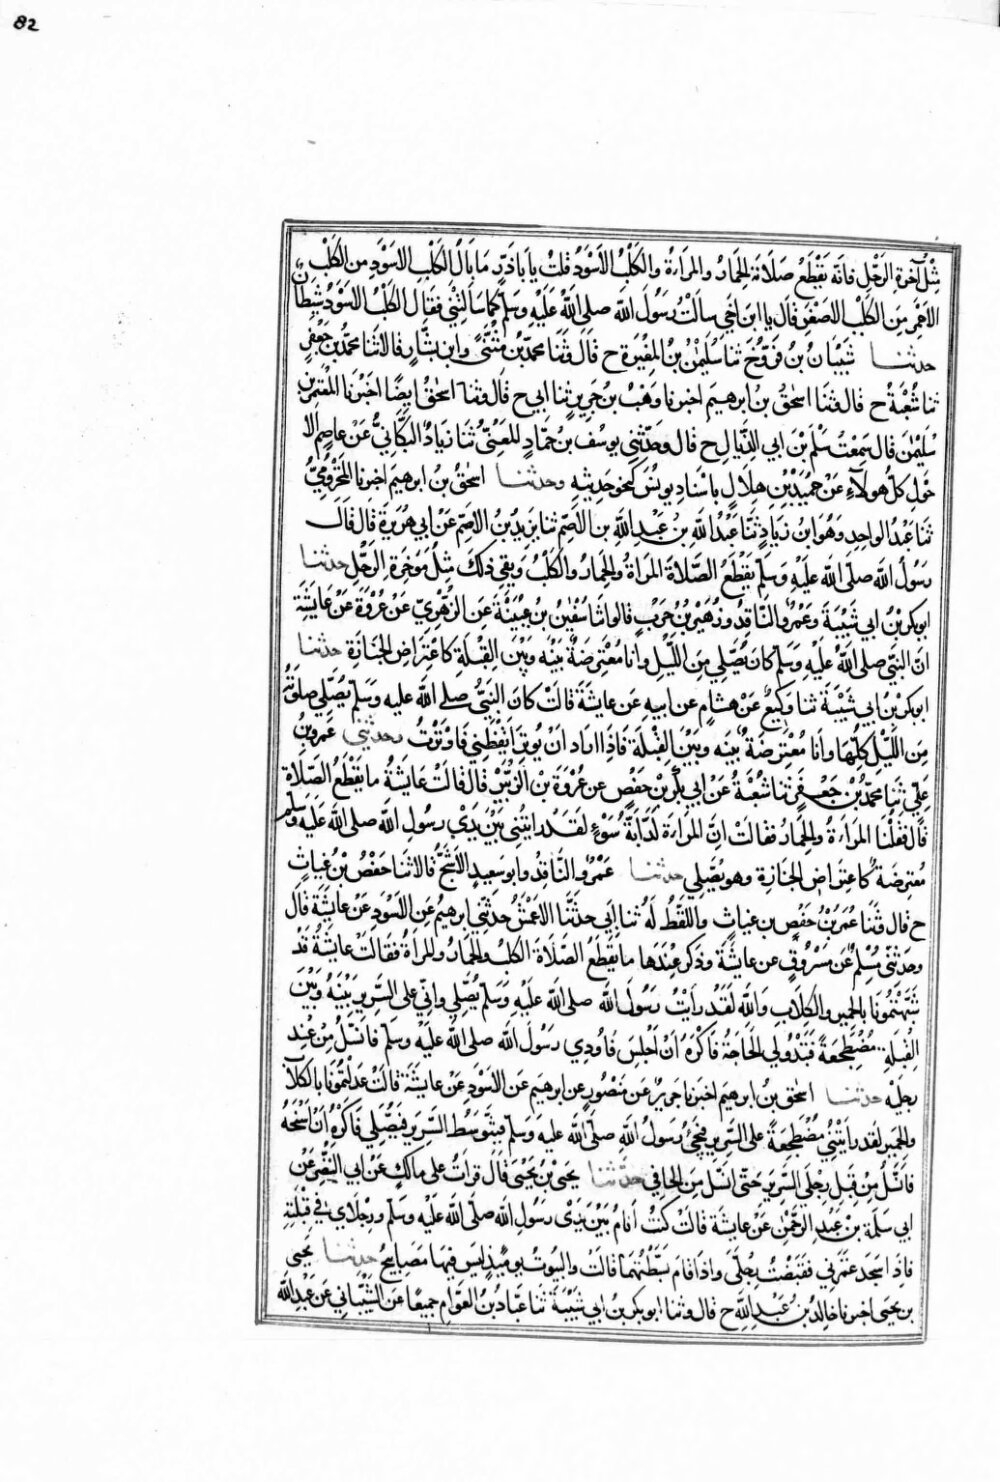 82
مثل آخرة الرحل فانه يقطع صلاته الحمار والمراة والكلب الاسود قلت يا اباذر ما بال الكلب الاسود من الكلب
الاحمر من الكلب الاصفر قال يا ابن اخي سالت رسول الله صلى الله عليه وسلم كما سالتني فقال الكلب الاسود شيطان
حدثنا شيبان بن فروخ ثنا سليمن بن المغيرة ح قال وثنا محمد بن مثنى وابن بشار قالا ثنا محمد بن جعفر
ثنا شعبة ح قال وثنا اسحق بن ابرهيم اخبرنا وهب بن جرير ثنا ابي ح قال وثنا اسحق ايضا اخبرنا المعتمر بن
سليمن قال سمعت سلم بن ابي الذيال ح قال وحدثني يوسف بن حماد المعني ثنا زياد البكائي عن عاصم الا
حول كل هولاء عن حميد بن هلال باسناد يونس كنحو حديثه وحدثنا اسحق بن ابرهيم اخبرنا المخزومي
ثنا عبد الواحد وهو ابن زياد ثنا عبد الله بن عبد الله بن الاصم ثنا يزيد بن الاصم عن ابي هريرة قال قال
رسول الله صلى الله عليه وسلم يقطع الصلاة المراة والحمار والكلب ويقي ذلك مثل موخرة الرحل حدثنا
ابو بكر بن ابي شيبة وعمرو الناقد وزهير بن حرب قالوا ثنا سفين بن عيينة عن الزهري عن عروة عن عايشة
ان النبي صلى الله عليه وسلم كان يصلي من الليل وانا معترضة بينه وبين القبلة كاعتراض الجنازة حدثنا
ابو بكر بن ابي شيبة ثنا وكيع عن هشام عن ابيه عن عايشة قالت كان النبي صلى الله عليه وسلم يصلي صلوته
من الليل كلها وانا معترضة بينه وبين القبلة فاذا اراد ان يوتر ايقظني فاوترت وحدثني عمرو بن
علي ثنا محمد بن جعفر ثنا شعبة عن ابي بكر بن حفص عن عروة بن الزبير قال قالت عايشة ما يقطع الصلاة
قال فقلنا المراة والحمار فقالت ان المراة لدابة سوء لقد رايتني بين يدي رسول الله صلى الله عليه وسلم
معترضة كاعتراض الجنازة وهو يصلي حدثنا عمرو الناقد وابو سعيد الاشج قالا ثنا حفص بن غياث
ح قال وثنا عمر بن حفص بن غياث واللفظ له ثنا ابي حدثنا الاعمش حدثني ابرهيم عن الاسود عن عايشة قال
وحدثني مسلم عن مسروق عن عايشة وذكر عندها ما يقطع الصلاة الكلب والحمار والمراة فقالت عايشة قد
شبهتمونا بالحمير والكلاب والله لقد رايت رسول الله صلى الله عليه وسلم يصلي واني على السرير بينه وبين
القبلة مضطجعة فتبدو لي الحاجة فاكره ان اجلس فاوذي رسول الله صلى الله عليه وسلم فانسل من عند
رجليه حدثنا اسحق بن ابرهيم اخبرنا جرير عن منصور عن ابرهيم عن الاسود عن عايشة قالت عدلتمونا بالكلاب
والحمير لقد رايتني مضطجعة على السرير فيجيء رسول الله صلى الله عليه وسلم فيتوسط السرير فيصلي فاكره ان اسنحه
فانسل من قبل رجلي السرير حتى انسل من لحافي حدثنا يحيى بن يحيى قال قرات على مالك عن ابي النضر عن
ابي سلمة بن عبد الرحمن عن عايشة قالت كنت انام بين يدي رسول الله صلى الله عليه وسلم ورجلاي في قبلته
فاذا سجد غمزني فقبضت رجلي واذا قام بسطتهما قالت والبيوت يوميذ ليس فيها مصابيح حدثنا يحيى
بن يحيى اخبرنا خالد بن عبد الله ح قال وثنا ابو بكر بن ابي شيبة ثنا عباد بن العوام جميعا عن الشيباني عن عبد الله